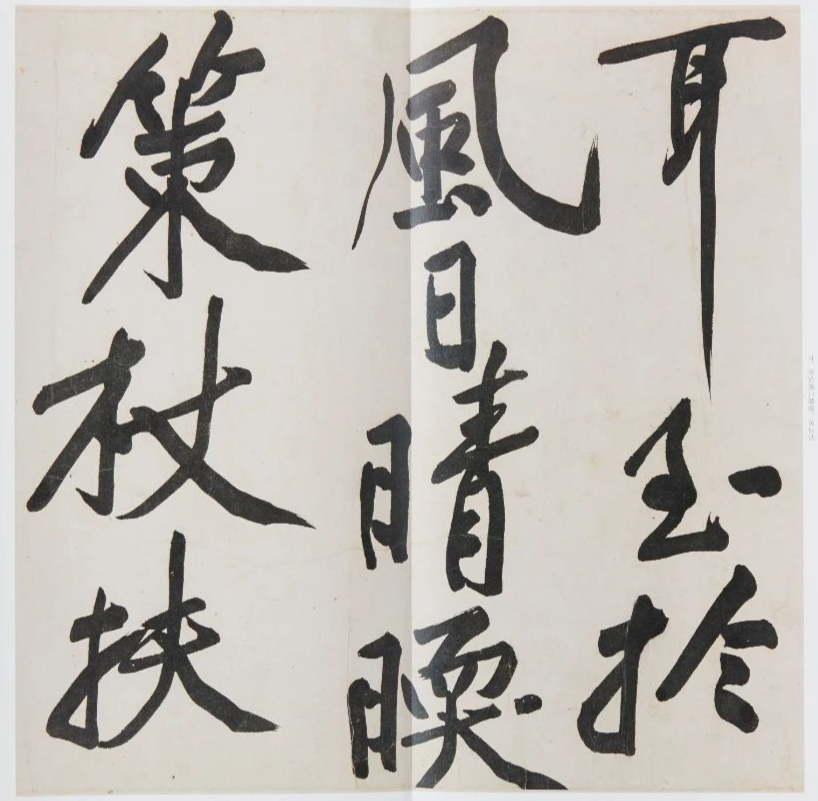 耳至扵
風日晴暖
策杖扶